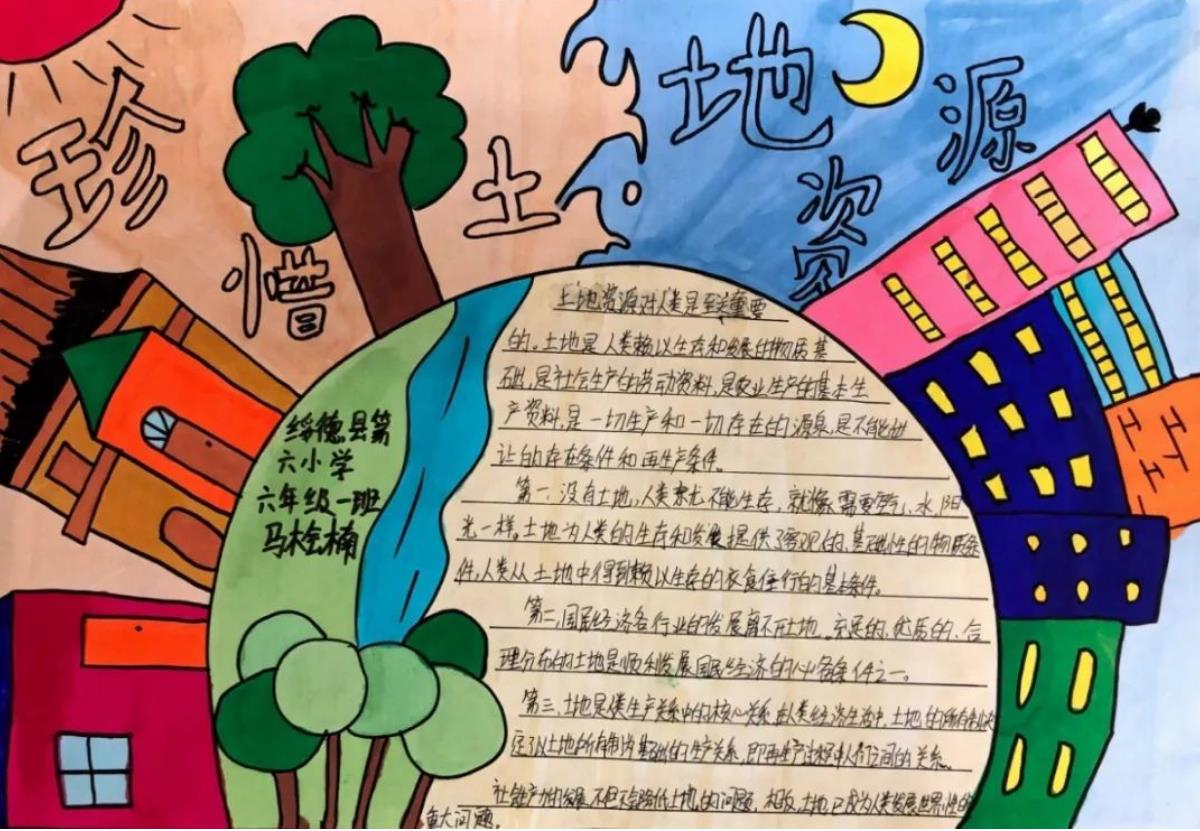 珍惜土地资源
绥德县第
六小学
六年级一班
马桧楠
土地资源对人类是至关重要
的。土地是人类赖以生存和发展的物质基
础,是社会生产的劳动资料,是农业生产的基本生
产资料,是一切生产和一切存在的源泉,是不能出
让的存在条件和再生产条件。
第一、没有土地,人类就不能生存,就像需要空气、水、阳
光一样。土地为人类的生存和发展提供了客观的、基础性的物质条
件,人类从土地中得到赖以生存的衣食住行的基本条件。
第二、国民经济各行业的发展离不开土地。充足的、优质的、合
理分布的土地是顺利发展国民经济的必备条件之一。
第三、土地是生产关系中的核心关系,在人类经济生活中,土地的所有制
定了以土地所有制为基础的生产关系,即再生产过程中人们之间的关系。
社会生产力的发展,不但不会降低土地的问题,相反,土地已成为人类发展世界性的
重大问题。